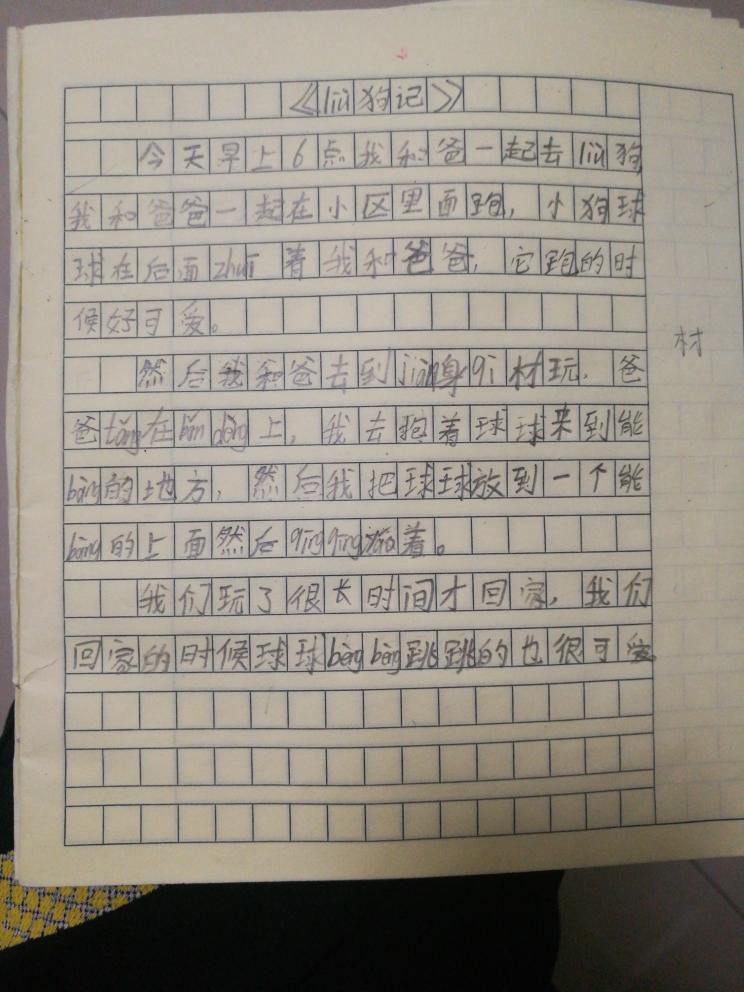 《liù狗记》
今天早上6点我和爸一起去liù狗,
我和爸爸一起在小区里面跑,小狗球
球在后面zhuī着我和爸爸,它跑的时
候好可爱。
然后我和爸去到jiàn身qì材玩,爸
爸tǎng在bǎn dèng上,我去抱着球球来到能
bèng的地方,然后我把球球放到一个能
bèng的上面然后qīngqīng着。
我们玩了很长时间才回家,我们
回家的时候球球bèngbèng跳跳的也很可爱。
材